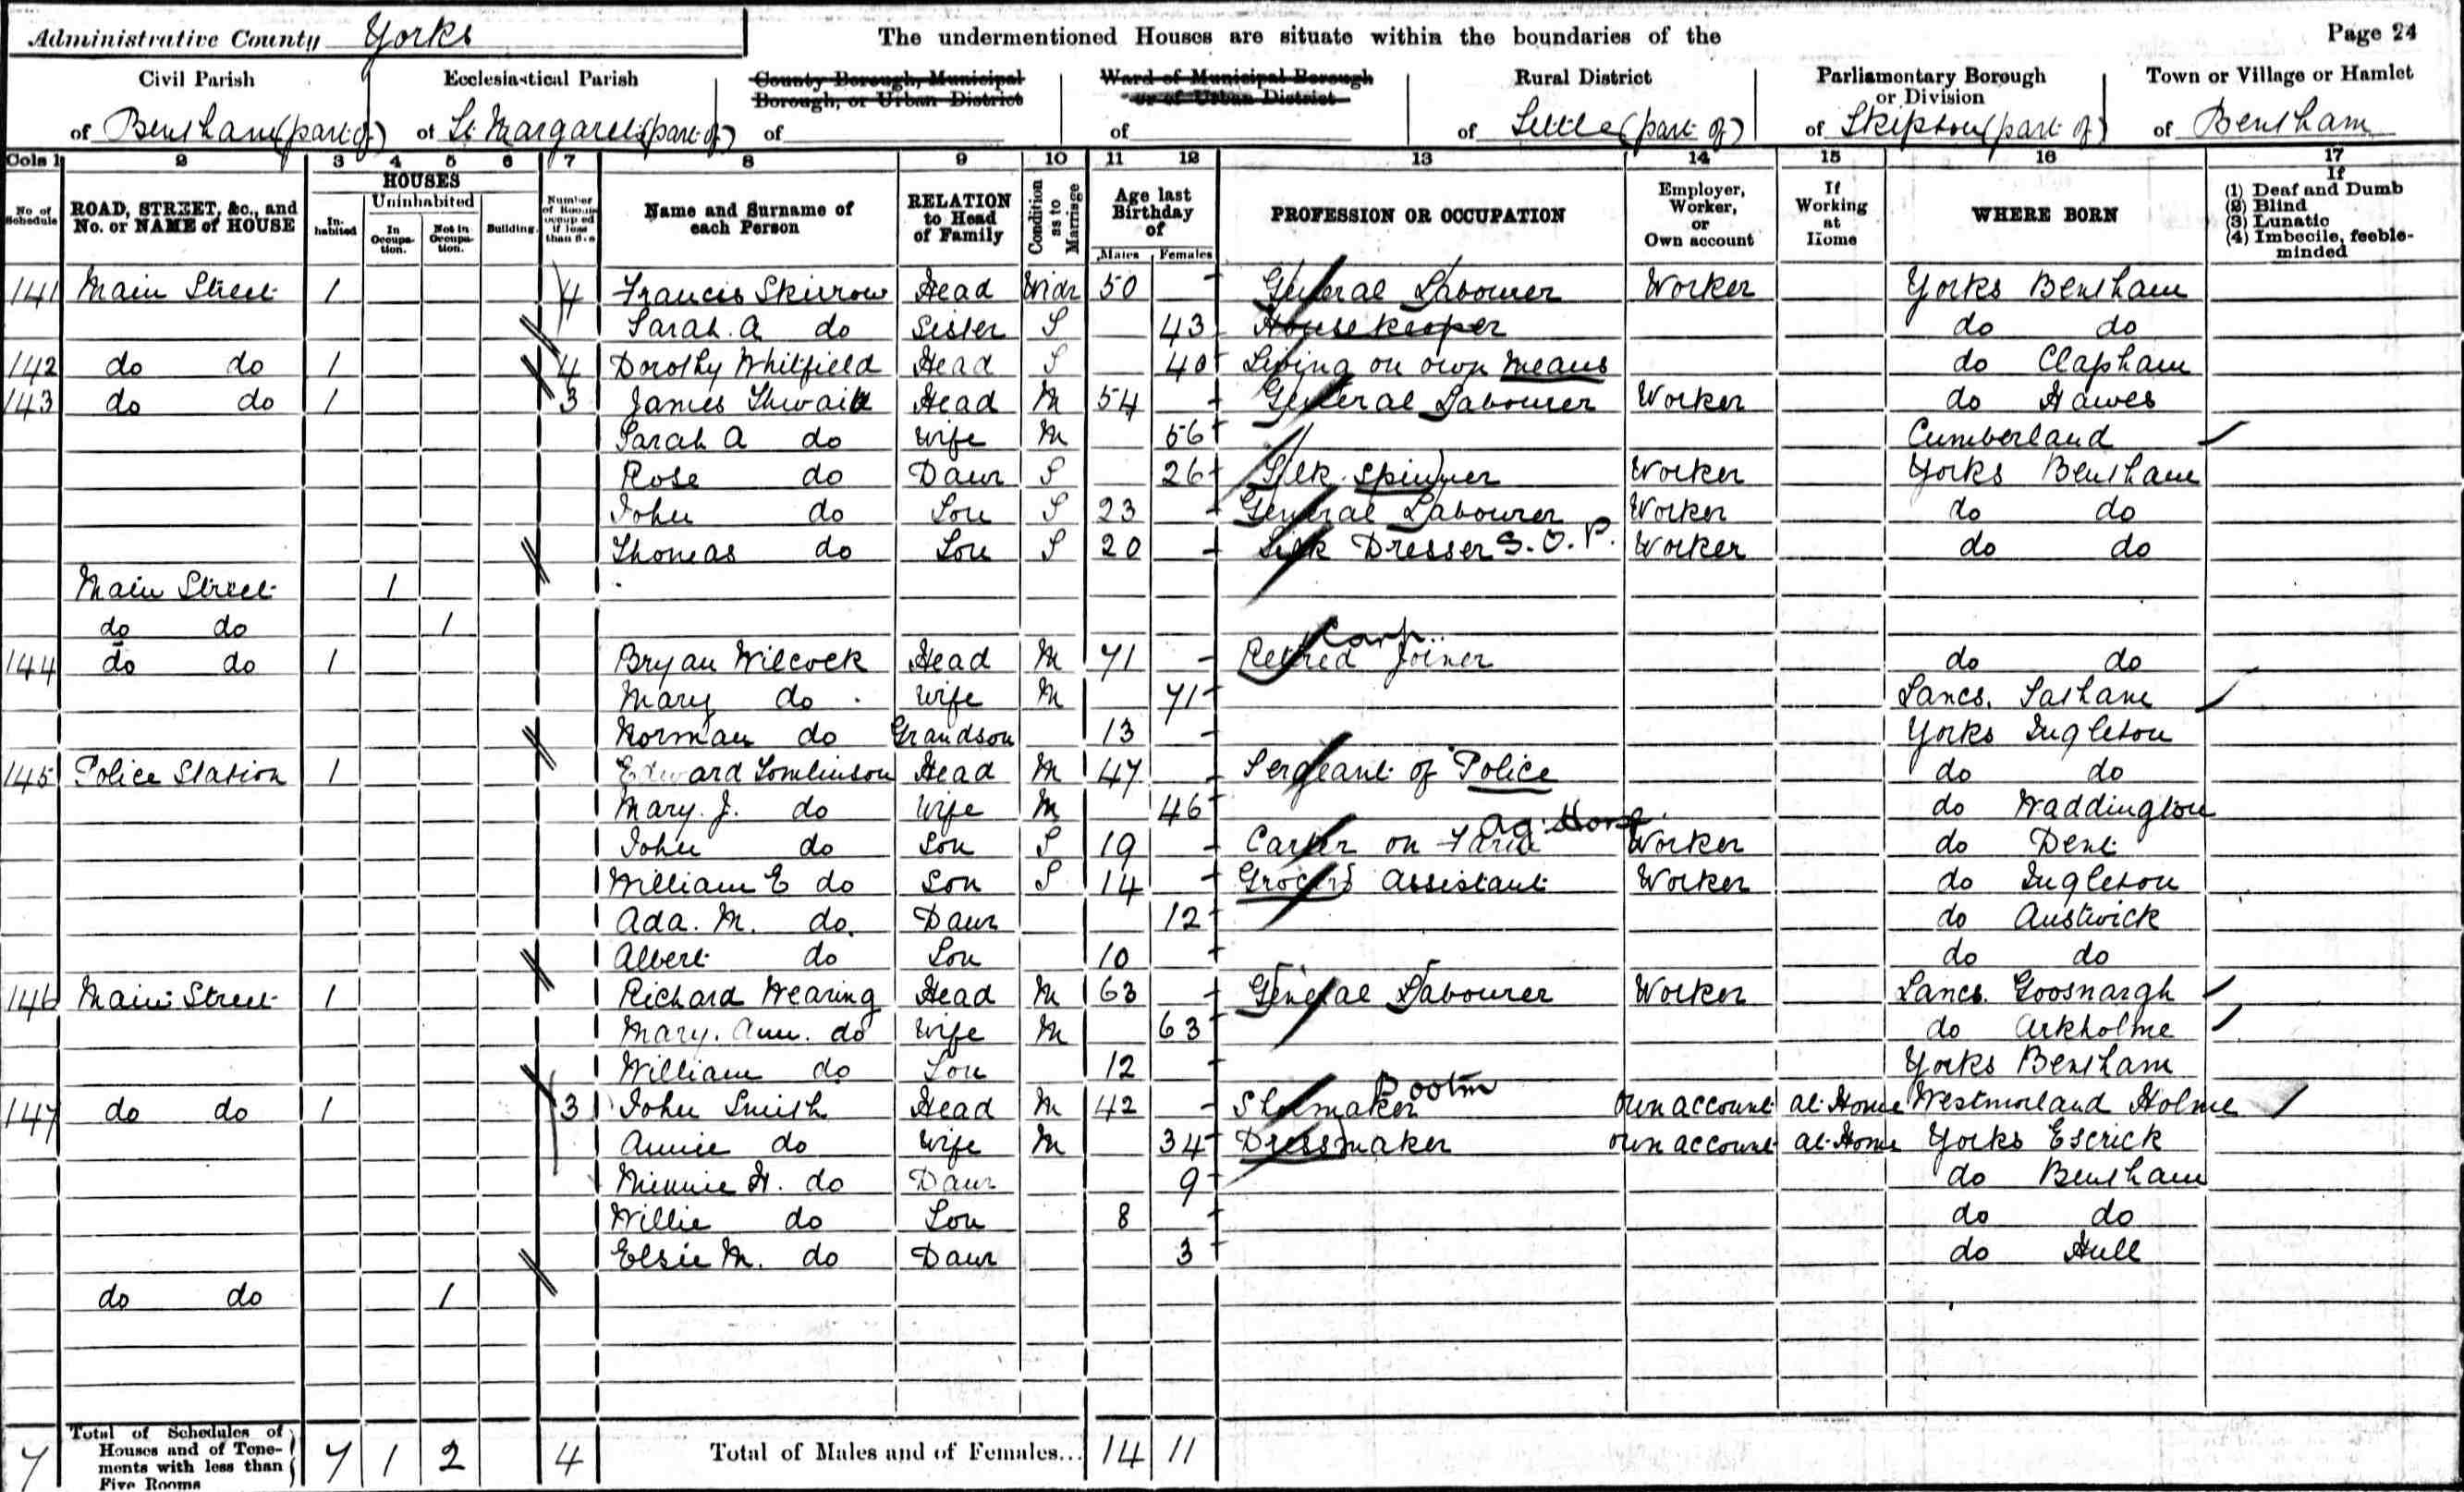 Administrative County Yorks
The undermentioned Houses are situate within the boundaries of the
Page 24
Civil Parish of Bentham (part of)
Ecclesiastical Parish of St. Margaret's (part of)
County Borough, Municipal Borough, or Urban District of
Ward of Municipal Borough or of Urban District of
Rural District of Settle (part of)
Parliamentary Borough or Division of Skipton (part of)
Town or Village or Hamlet of Bentham
Cols 1 2 3 4 5 6 7 8 9 10 11 12 13 14 15 16 17
No. of Schedule
ROAD, STREET, &c., and No. or NAME of HOUSE
HOUSES
Inhabited
Uninhabited
In Occupation.
Not in Occupation.
Building.
Number of Rooms occupied if less than five
Name and Surname of each Person
RELATION to Head of Family
Condition as to Marriage
Age last Birthday of
Males Females
PROFESSION OR OCCUPATION
Employer, Worker, or Own account
If Working at Home
WHERE BORN
If
(1) Deaf and Dumb
(2) Blind
(3) Lunatic
(4) Imbecile, feeble-minded
141 Main Street 1 4 Francis Skirrow Head Widr 50 General Labourer Worker Yorks Bentham
Sarah. A do Sister S 43 Housekeeper do do
142 do do 1 4 Dorothy Whitfield Head S 40 Living on own means do Clapham
143 do do 1 3 James Thwaite Head M 54 General Labourer Worker do Hawes
Sarah A do Wife M 56 Cumberland
Rose do Daur S 26 Silk Spinner Worker Yorks Bentham
John do Son S 23 General Labourer Worker do do
Thomas do Son S 20 Silk Dresser S.O.P. Worker do do
Main Street 1
do do 1
144 do do 1 Bryan Wilcock Head M 71 Retired Joiner Carp. do do
Mary do Wife M 71 Lancs. Tatham
Norman do Grandson 13 Yorks Ingleton
145 Police Station 1 Edward Tomlinson Head M 47 Sergeant of Police do do
Mary. J. do Wife M 46 do Waddington
John do Son S 19 Carter on Farm Ag. Horse Worker do Dent
William E do Son S 14 Grocer's Assistant Worker do Ingleton
Ada. M. do. Daur 12 do Austwick
Albert do Son 10 do do
146 Main Street 1 Richard Wearing Head M 63 General Labourer Worker Lancs. Goosnargh
Mary. Ann. do Wife M 63 do Arkholme
William do Son 12 Yorks Bentham
147 do do 1 3 John Smith Head M 42 Shoemaker Bootm Own account At Home Westmorland Holme
Annie do Wife M 34 Dressmaker own account At Home Yorks Escrick
Minnie H. do Daur 9 do Bentham
Willie do Son 8 do do
Elsie M. do Daur 3 do Hull
do do 1
7 Total of Schedules of Houses and of Tenements with less than Five Rooms 7 1 2 4 Total of Males and of Females... 14 11